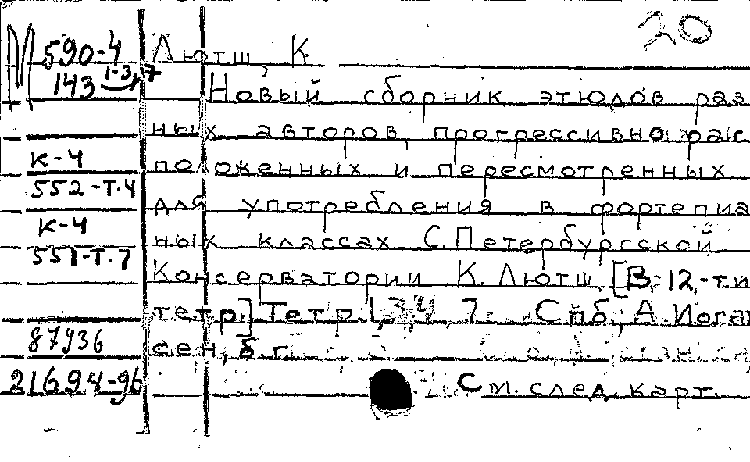 20
М 590-4 Лютш К.
143 1-3,7
Новый сборник этюдов раз
ных авторов, прогрессивно рас
К-4 положенных и пересмотренных
552-Т.4 для употребления в фортепиа
К-4 ных классах С.Петербургской
551-Т.7 Консерватории К. Лютш. [В 12-ти
тетр.] Тетр. 1,3,4, 7. Спб, А. Иоган
87936 сен, б г.
21694-96 См. след. карт.